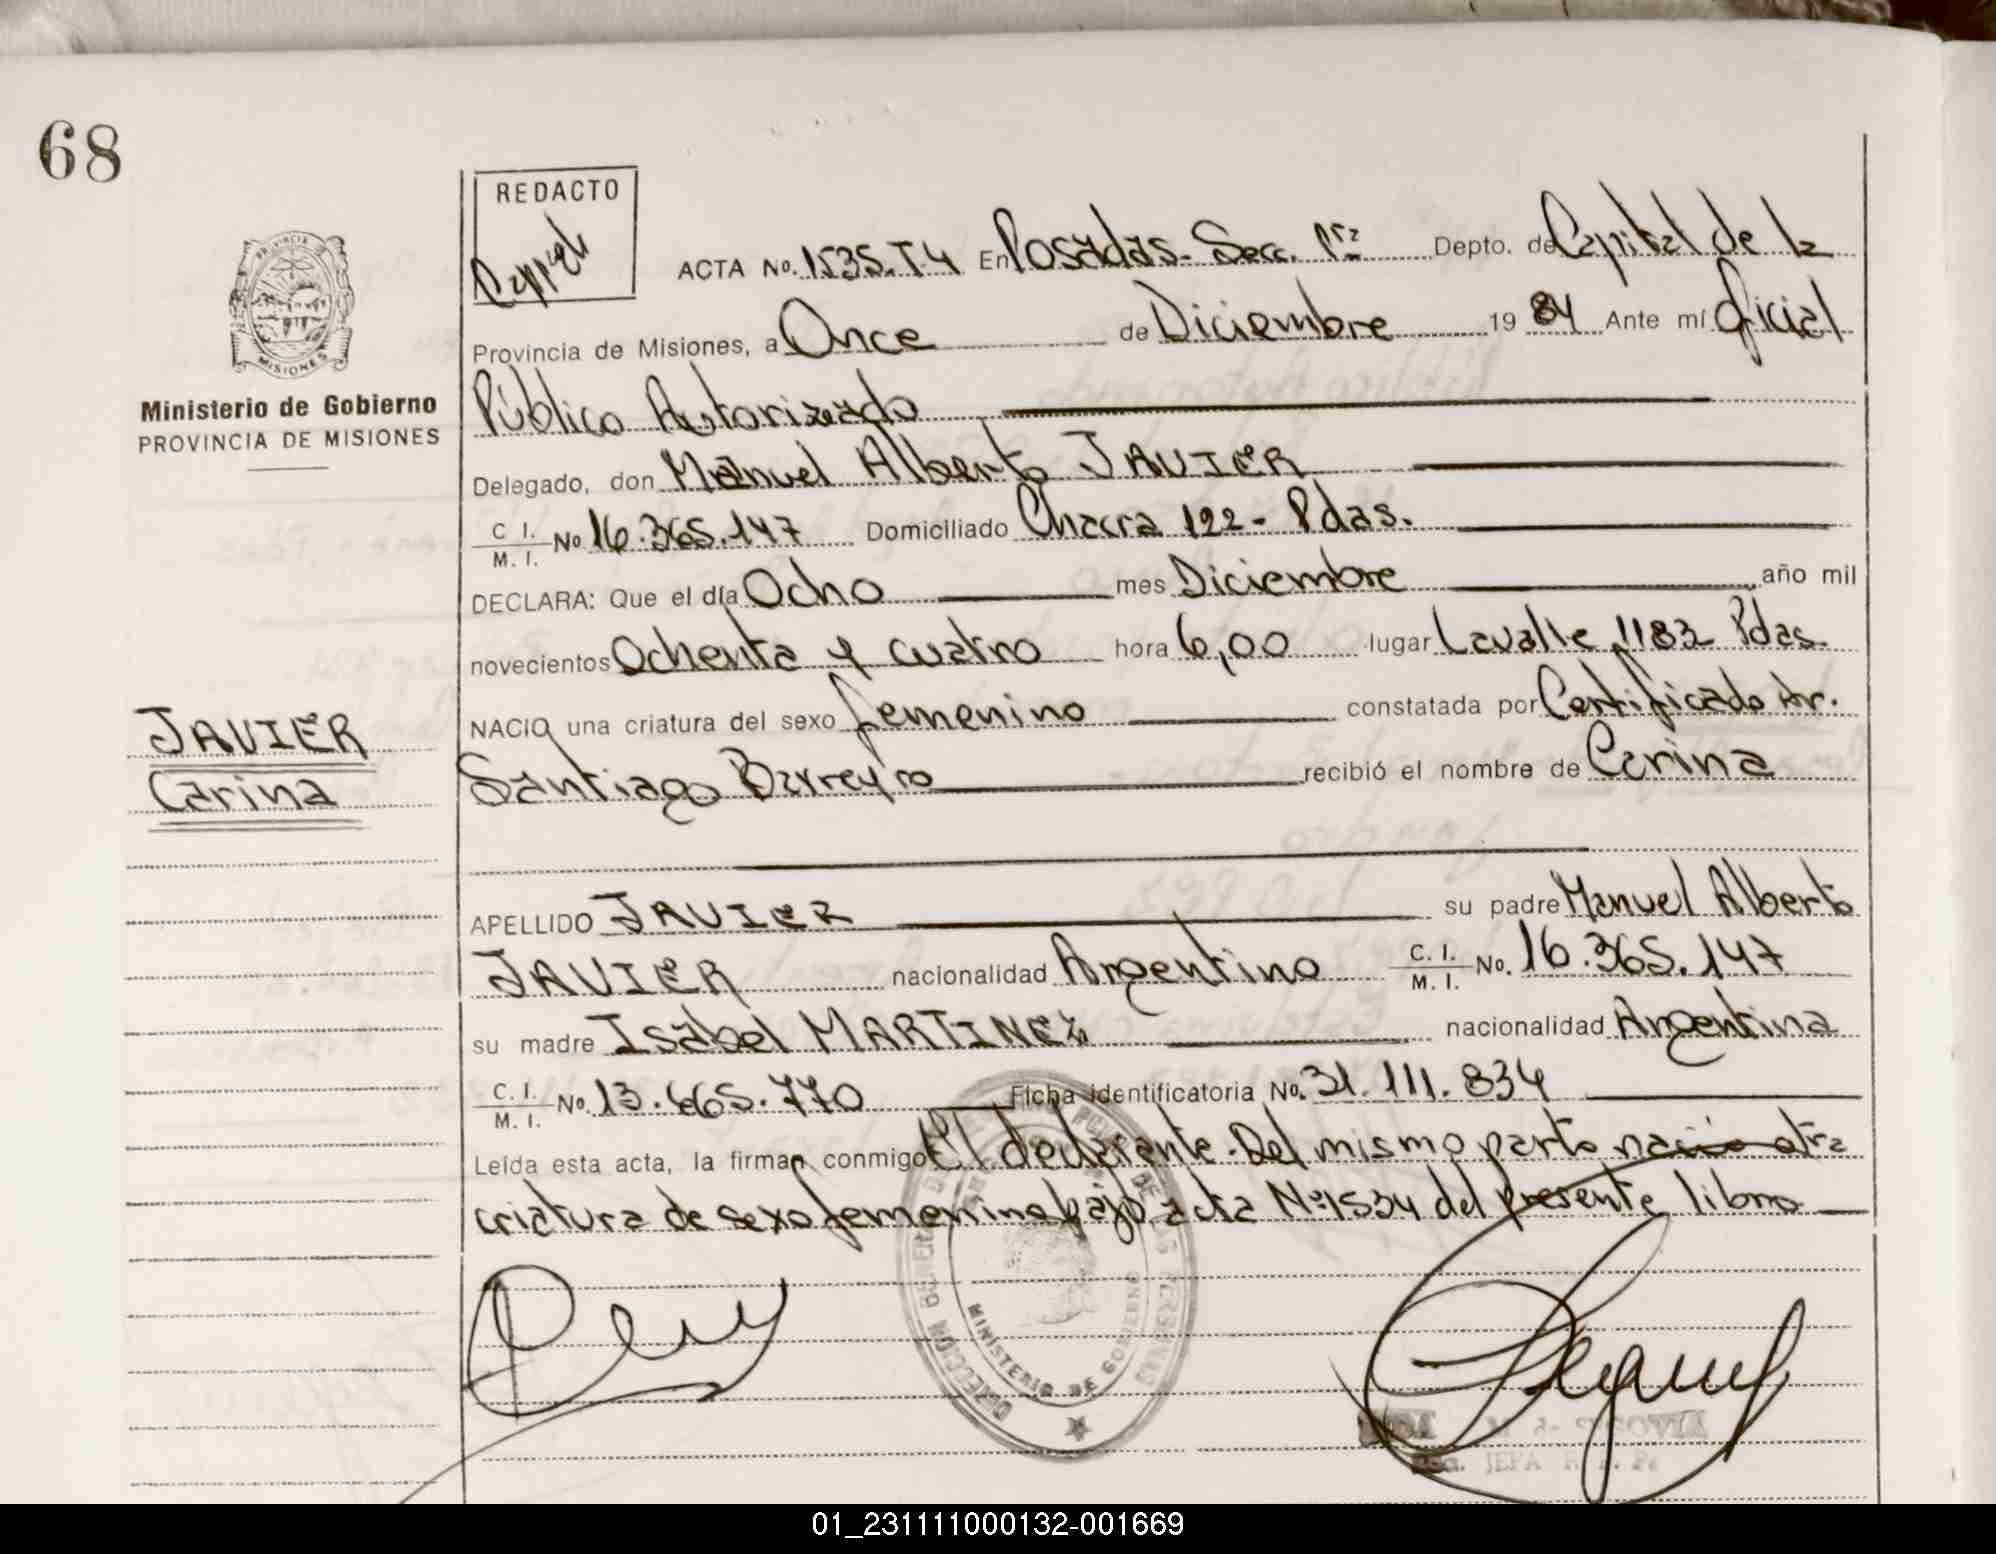 68
REDACTO
ACTA No. 1535.T4 En Posadas- Secc. 1ra Depto. de Capital de la
PROVINCIA
MISIONES
Provincia de Misiones, a Once de Diciembre 19 84 Ante mí Oficial
Ministerio de Gobierno
PROVINCIA DE MISIONES
Público Autorizado
Delegado, don Manuel Alberto JAVIER
C. I.
M. I. No 16.365.147 Domiciliado Chacra 122- Pdas.
DECLARA: Que el día Ocho mes Diciembre año mil
novecientos Ochenta y cuatro hora 6,00 lugar Lavalle 1183 Pdas.
NACIO una criatura del sexo femenino constatada por Certificado Dr.
JAVIER
Carina
Santiago Barreyro recibió el nombre de Carina
APELLIDO JAVIER su padre Manuel Alberto
JAVIER nacionalidad Argentino C. I.
M. I. No. 16.365.147
su madre Isabel MARTINEZ nacionalidad Argentina
C. I.
M. I. No. 13.665.770 Ficha identificatoria No. 31.111.834
Leída esta acta, la firman conmigo El declarante. Del mismo parto nació otra
criatura de sexo femenino bajo acta Nº1534 del presente libro
MINISTERIO DE GOBIERNO
01_231111000132-001669